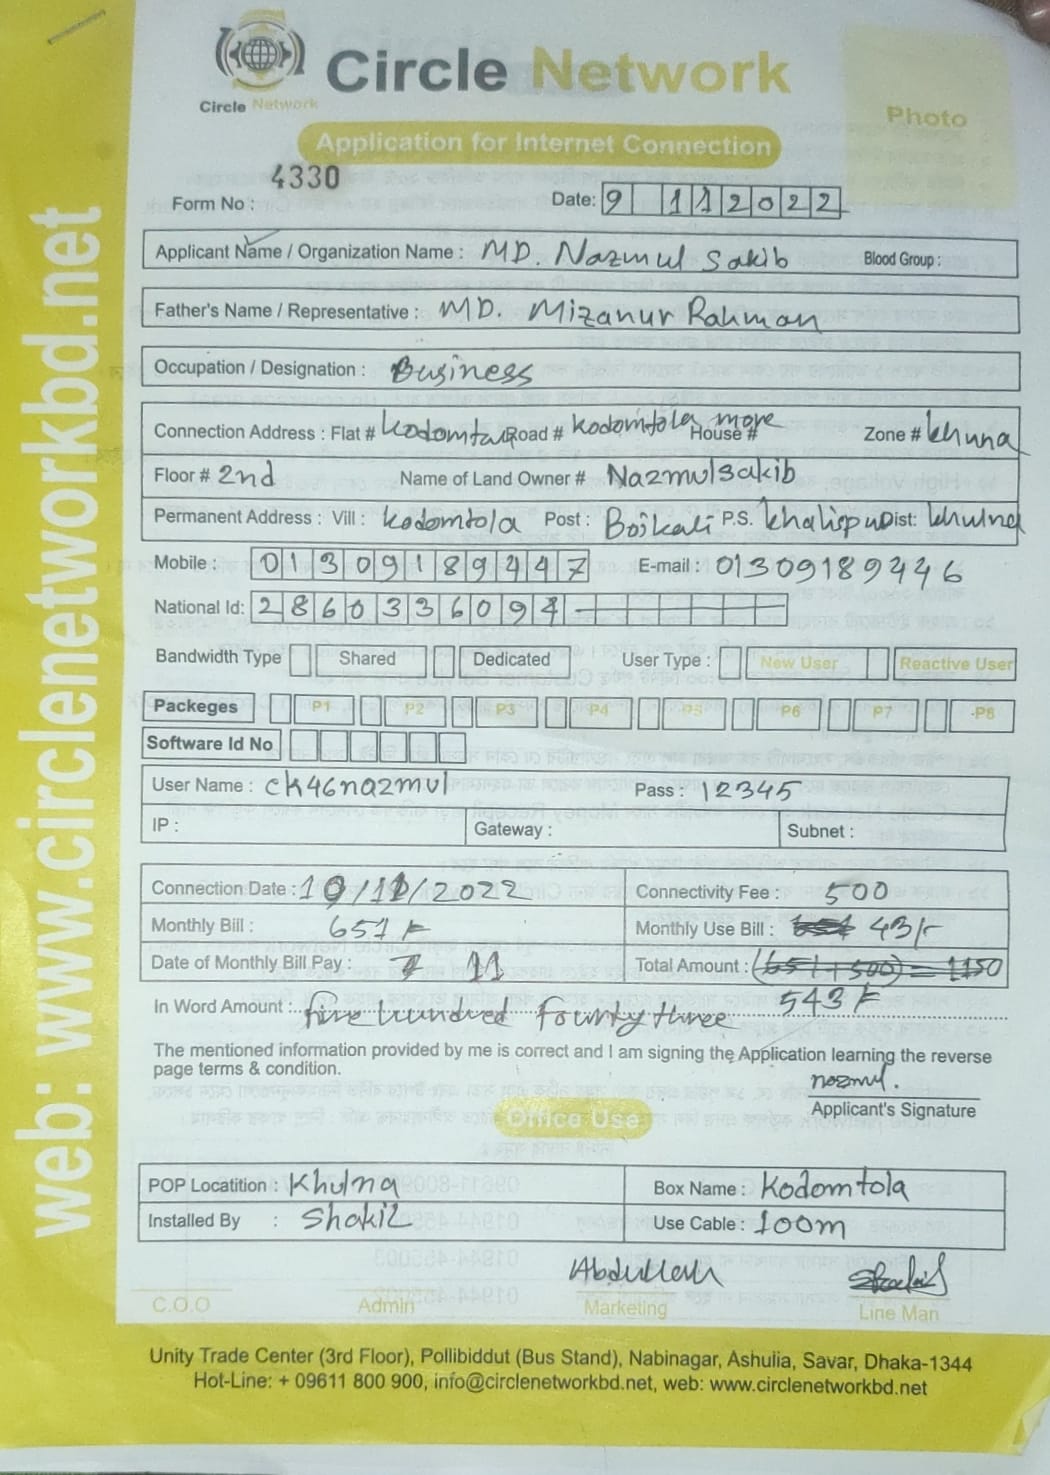 Circle Network
Circle Network
Photo
Application for Internet Connection
4330
Form No :
Date: 9 11 2022
Applicant Name / Organization Name : MD. Nazmul Sakib Blood Group :
Father's Name / Representative : MD. Mizanur Rahman
Occupation / Designation : Business
Connection Address : Flat # Road # Kodomtola more House # Zone #
Floor # 2nd Name of Land Owner # Nazmulsakib
Permanent Address : Vill : Kodomtola Post : Boikali P.S. Dist: Khulna
Mobile : 01309189447 E-mail : 01309189446
National Id: 2860336094
Bandwidth Type Shared Dedicated User Type : New User Reactive User
Packeges P1 P2 P3 P4 P5 P6 P7 P8
Software Id No
User Name : ck46nazmul Pass : 12345
IP : Gateway : Subnet :
Connection Date : 10/11/2022 Connectivity Fee : 500
Monthly Bill : 651/- Monthly Use Bill : 43/-
Date of Monthly Bill Pay : 11 Total Amount : (651+500) = 1150
543/-
In Word Amount : five hundred fourty three
The mentioned information provided by me is correct and I am signing the Application learning the reverse
page terms & condition.
nazmul.
Applicant's Signature
Office Use
POP Locatition : Khulna Box Name : Kodomtola
Installed By : Shakil Use Cable : 100m
Abdullah
C.O.O Admin Marketing Line Man
Unity Trade Center (3rd Floor), Pollibiddut (Bus Stand), Nabinagar, Ashulia, Savar, Dhaka-1344
Hot-Line: + 09611 800 900, info@circlenetworkbd.net, web: www.circlenetworkbd.net
web: www.circlenetworkbd.net